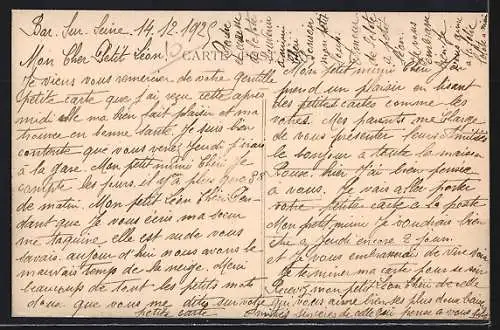 Bar. Sur. Seine. 14.12.192
Mon Cher Petit Léon.
Je viens vous remercier de votre gentille
petite carte que j'ai reçu cette après
midi elle ma bien fait plaisir et ma
trouvée en bonne santé. Je suis bien
contente que vous venez Jeudi j'irais
à la gare. Mon petit mimi Chéri Je
compte les jours. il n'y a plus que
de matin. Mon petit Léon Chéri Pen-
dant que Je vous écris ma sœur
me taquine elle est rude vous
savais. aujour d'hui nous avons le
mauvais temps de la neige. Merci
beaucoups de tout les petits mots
doux que vous me dites sur votre
petite carte
CARTE
Mon petit mimi Chéri
prend un plaisir en lisant
des petites cartes comme les
votres. Mes parents me charge
de vous présenter leurs amitiés
le bonjour à toute la maison
hier J'ai bien pensée
a vous. Je vais aller porter
votre petite carte a la poste
Mon petit mimi Je voudrais bien
être a Jeudi encore 2 jours.
et vous embrassais de vive voix
Je termine ma carte pour ce soir
Recevez mon petit Léon Chéri de celle
qui vous aime bien ses plus doux baisers
sincères de celle qui pense a vous